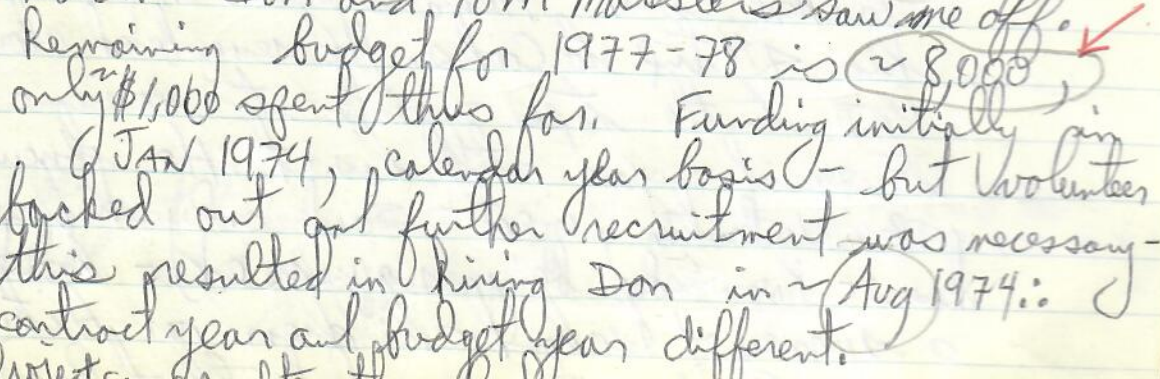 saw me off.
Remaining budget for 1977-78 is ~ 8,000,
only ~$1,000 spent thus far. Funding initially in
JAN 1974, calendar year basis - but volunteer
backed out and further recruitment was necessary -
this resulted in hiring Don in ~ Aug 1974 ∴
contract year and budget year different.